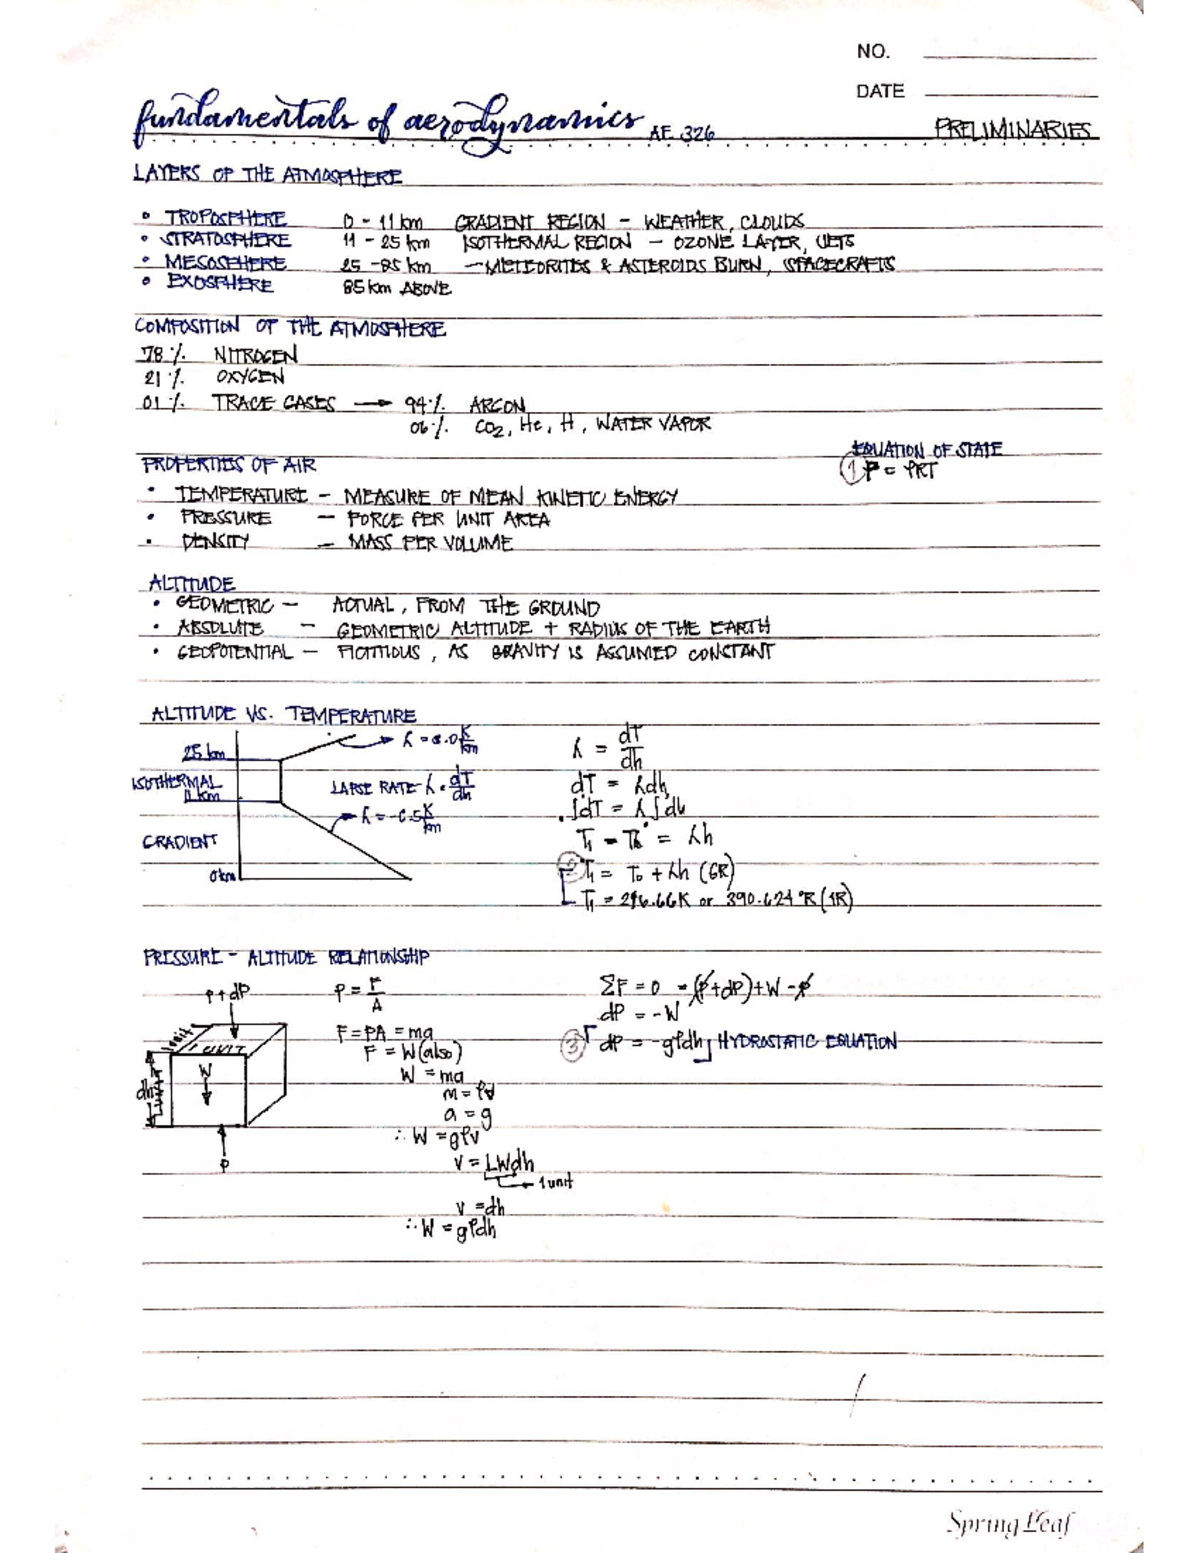 NO.
DATE
fundamentals of aerodynamics AE 326 PRELIMINARIES
LAYERS OF THE ATMOSPHERE
• TROPOSPHERE 0 - 11 km GRADIENT REGION - WEATHER, CLOUDS
• STRATOSPHERE 11 - 25 km ISOTHERMAL REGION - OZONE LAYER, JETS
• MESOSPHERE 25 - 85 km - METEORITES & ASTEROIDS BURN, SPACECRAFTS
• EXOSPHERE 85 km ABOVE
COMPOSITION OF THE ATMOSPHERE
78 % NITROGEN
21 % OXYGEN
01 % TRACE GASES → 94 % ARGON
06 % CO2, He, H, WATER VAPOR
EQUATION OF STATE
PROPERTIES OF AIR ① P = ρRT
• TEMPERATURE - MEASURE OF MEAN KINETIC ENERGY
• PRESSURE - FORCE PER UNIT AREA
• DENSITY - MASS PER VOLUME
ALTITUDE
• GEOMETRIC - ACTUAL, FROM THE GROUND
• ABSOLUTE - GEOMETRIC ALTITUDE + RADIUS OF THE EARTH
• GEOPOTENTIAL - FICTITIOUS, AS GRAVITY IS ASSUMED CONSTANT
ALTITUDE VS. TEMPERATURE
25 km
ISOTHERMAL
11 km
GRADIENT
0 km
λ = 3.0 K/km
LAPSE RATE - λ = dT/dh
λ = -6.5 K/km
λ = dT/dh
dT = λdh
∫dT = λ∫dh
T1 - T0 = λh
② T1 = T0 + λh (GR)
T1 = 216.66K or 390.624°R (IR)
PRESSURE - ALTITUDE RELATIONSHIP
P + dP
1 unit
1 UNIT
W
dh
P
P = F/A
F = PA = ma
F = W (also)
W = ma
m = ρV
a = g
∴ W = gρv
V = LWdh
→ 1 unit
V = dh
∴ W = gρdh
ΣF = 0 = (P + dP) + W - P
dP = -W
③ dP = -gρdh HYDROSTATIC EQUATION
Spring Leaf